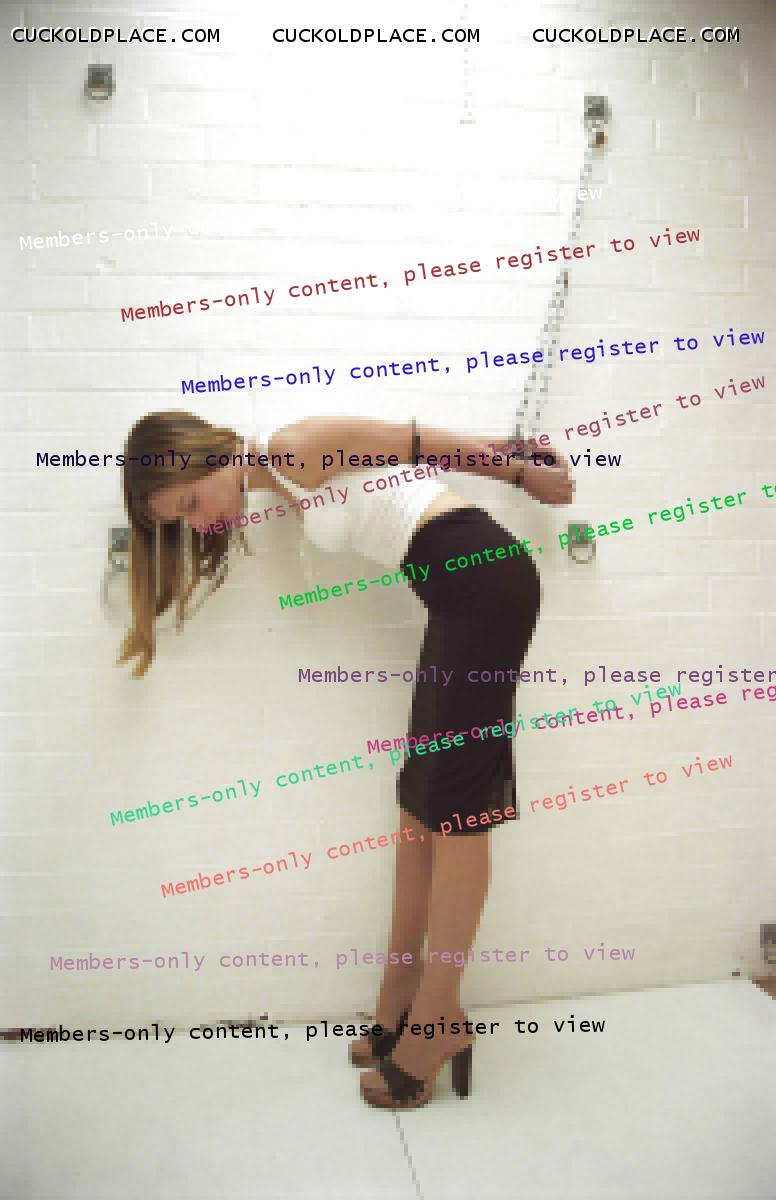 CUCKOLDPLACE.COM CUCKOLDPLACE.COM CUCKOLDPLACE.COM
Members-only view
Members-only content, please register to view
Members-only content, please register to view
Members-only content, please register to view
Members-only content, please register to view
Members-only content, please register to
Members-only content, please register
Members-only content, please reg
Members-only content, please register to view
Members-only content, please register to view
Members-only content, please register to view
Members-only content, please register to view